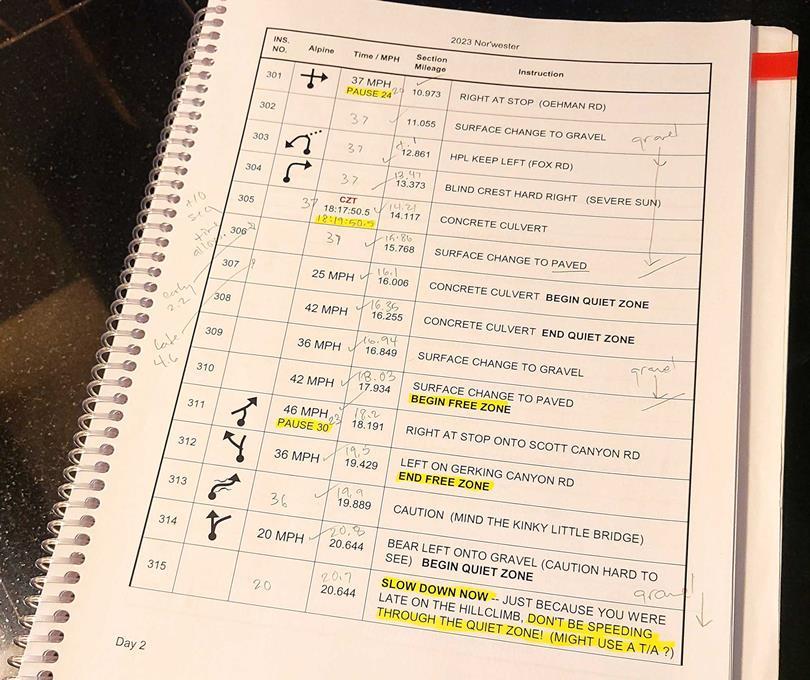 2023 Nor'wester
INS. NO. Alpine Time / MPH Section Mileage Instruction
301 37 MPH 10.973 RIGHT AT STOP (OEHMAN RD)
PAUSE 24
302 37 11.055 SURFACE CHANGE TO GRAVEL gravel
303 37 12.861 HPL KEEP LEFT (FOX RD)
304 37 13.47 13.373 BLIND CREST HARD RIGHT (SEVERE SUN)
305 37 CZT 18:17:50.5 14.21 14.117 CONCRETE CULVERT
18:19:50.5
+10 sec
306 37 15.86 15.768 SURFACE CHANGE TO PAVED
307 25 MPH 16.1 16.006 CONCRETE CULVERT BEGIN QUIET ZONE
early 2.2
308 42 MPH 16.35 16.255 CONCRETE CULVERT END QUIET ZONE
late 4.6
309 36 MPH 16.94 16.849 SURFACE CHANGE TO GRAVEL gravel
310 42 MPH 18.03 17.934 SURFACE CHANGE TO PAVED
BEGIN FREE ZONE
311 46 MPH 18.2 18.191 RIGHT AT STOP ONTO SCOTT CANYON RD
PAUSE 30 23
312 36 MPH 19.5 19.429 LEFT ON GERKING CANYON RD
END FREE ZONE
313 36 19.9 19.889 CAUTION (MIND THE KINKY LITTLE BRIDGE)
314 20 MPH 20.8 20.644 BEAR LEFT ONTO GRAVEL (CAUTION HARD TO
SEE) BEGIN QUIET ZONE gravel
315 20 20.7 20.644 SLOW DOWN NOW -- JUST BECAUSE YOU WERE
LATE ON THE HILLCLIMB, DON'T BE SPEEDING
THROUGH THE QUIET ZONE! (MIGHT USE A T/A ?)
Day 2